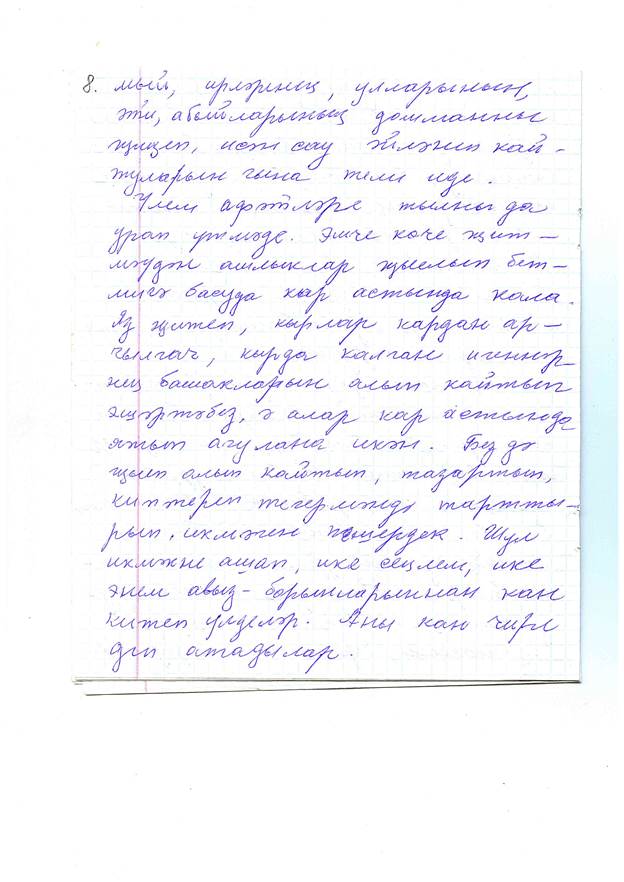 8. мый, ирләрнең, улларының,
әти, абыйларының дошманны
җиңеп, исән сау әйләнеп кай-
туларын гына тели иде.
Үлем афәтләре тылны да
урап үтмәде. Эшче көче җит-
мәүдән ашлыклар җыелып бет-
мичә басуда кар астында кала.
Яз җитеп, кырлар кардан ар-
чылгач, кырда калган игеннәр-
нең башакларын алып кайтып
эшәртәбез, ә алар кар астында
ятып агулана икән. Без дә
җыеп алып кайтып, тазартып,
киптереп тегермәндә тартты-
рып, икмәген пешердек. Шул
икмәкне ашап, ике сеңлем, ике
энем авыз-борыннарыннан кан
китеп үлделәр. Аны кан чире
дип атадылар.